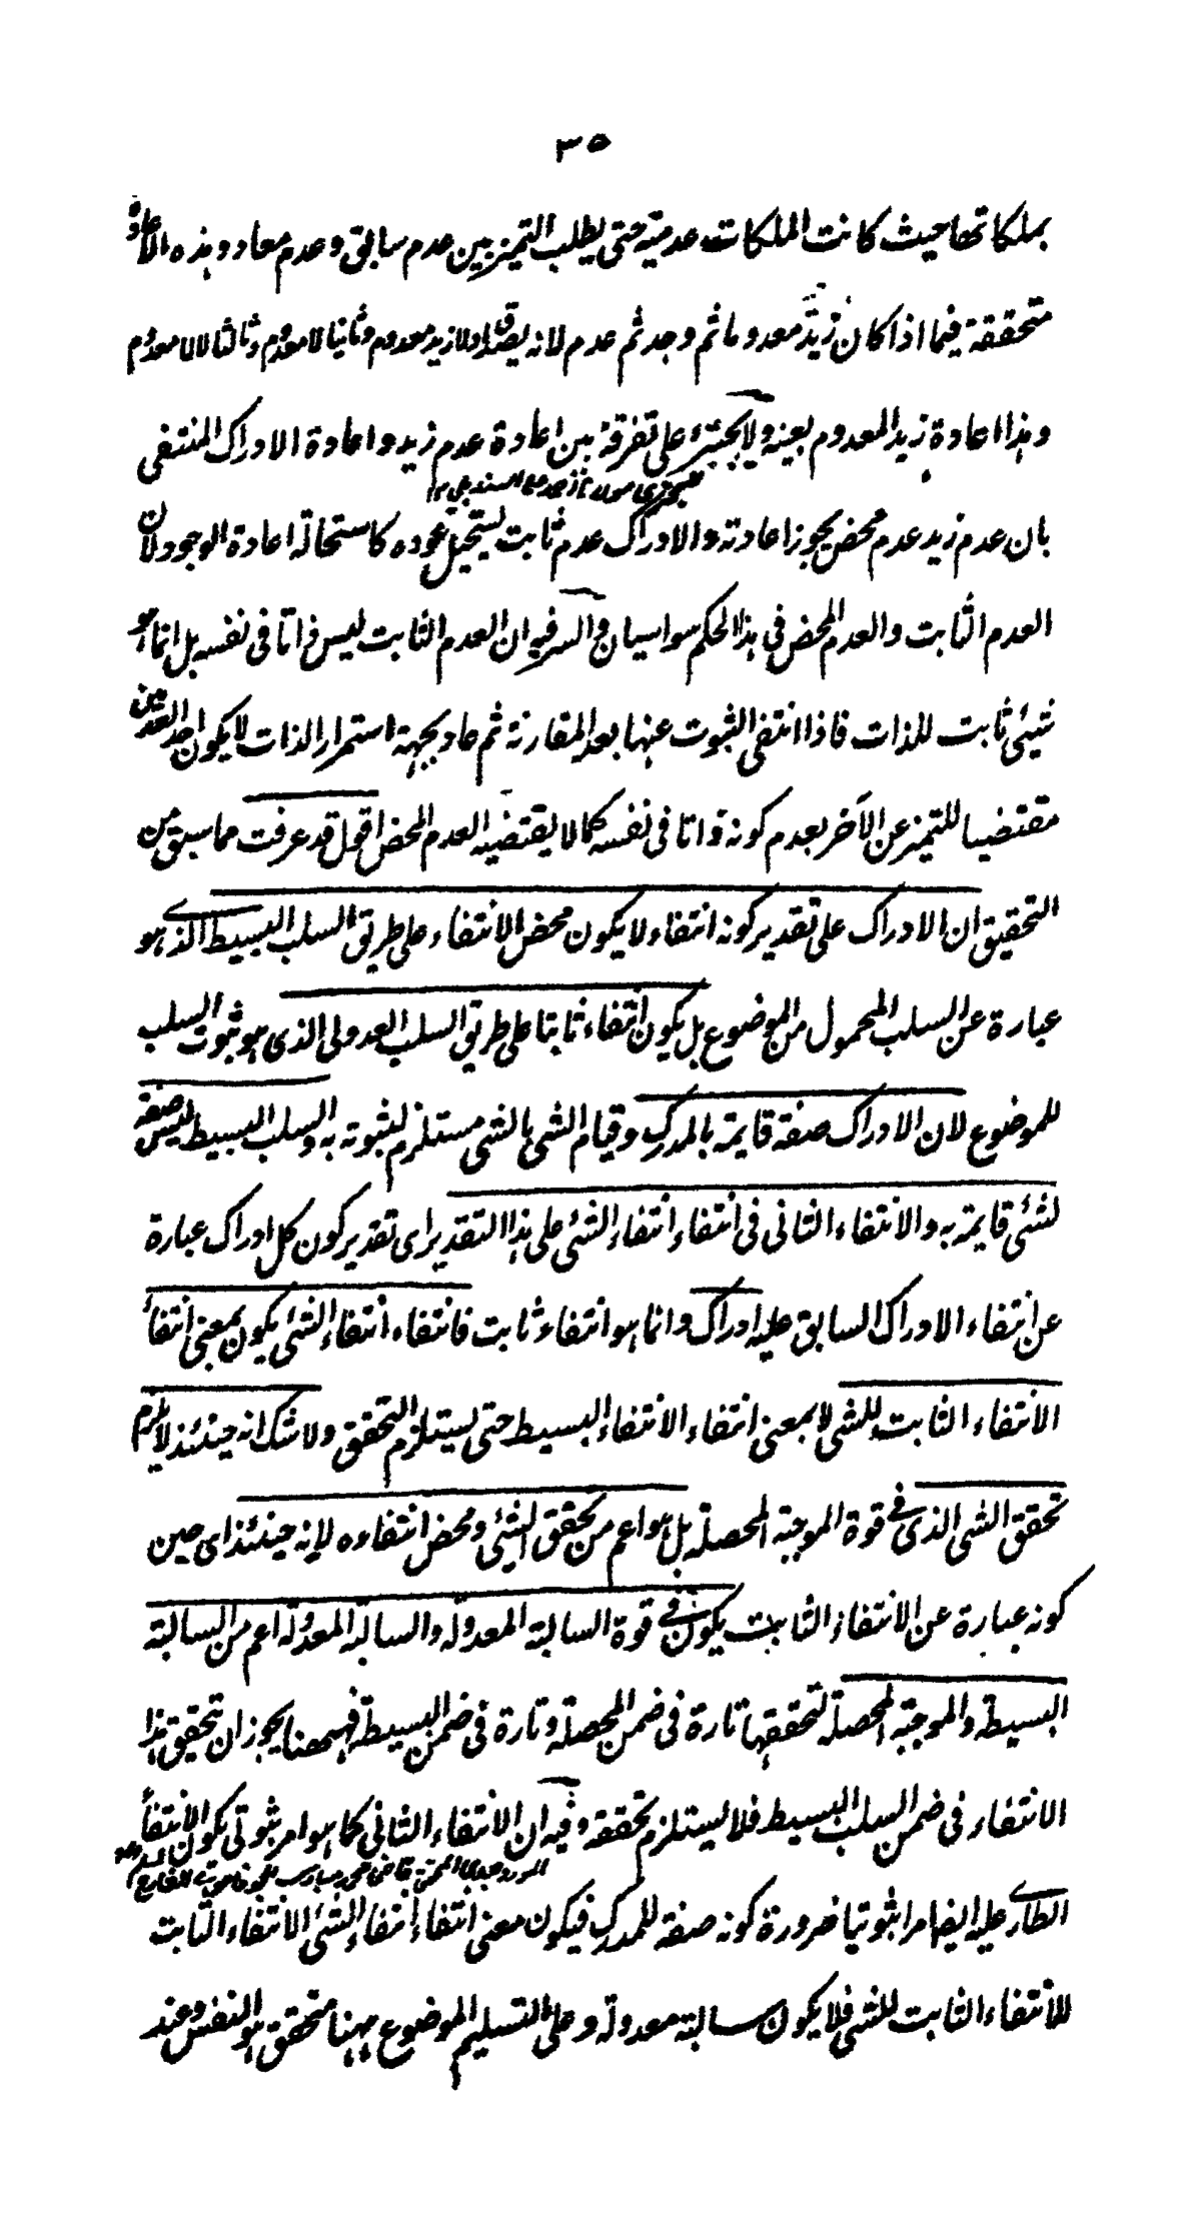 ٣٥
بملكاتها حيث كانت الملكات عدمية حتى يطلب التميز بين عدم سابق وعدم معاد وهذه الاعادة
متحققة فيما اذا كان زيد معدوما ثم وجد ثم عدم لانه يصدق اولا زيد معدوم وثانيا لا معدوم وثالثا لا لا معدوم
وهذا اعادة زيد المعدوم بعينه ولا يجترئ على تفرقة بين اعادة عدم زيد واعادة الادراك المنتفى
بان عدم زيد عدم محض يجوز اعادته والادراك عدم ثابت يستحيل عوده كاستحالة اعادة الوجود لان
العدم الثابت والعدم المحض فى هذا الحكم سواسيان والسرفيه ان العدم الثابت ليس ذاتا فى نفسه بل انما هو
شيئى ثابت للذات فاذا انتفى الثبوت عنها بعد المقارنة ثم عاد بجهة استمرار الذات لا يكون احد العدمين
مقتضيا للتميز عن الآخر بعدم كونه ذاتا فى نفسه كما لا يقتضيه العدم المحض اقول قد عرفت مما سبق من
التحقيق ان الادراك على تقدير كونه انتفاء لا يكون محض الانتفاء على طريق السلب البسيط الذى هو
عبارة عن السلب المحمول من الموضوع بل يكون انتفاء ثابتا على طريق السلب العدولى الذى هو ثبوت السلب
للموضوع لان الادراك صفة قايمة بالمدرك وقيام الشى بالشى مستلزم لثبوته به والسلب البسيط ليس صفة
لشئى قايمة به والانتفاء الثانى فى انتفاء انتفاء الشئى على هذا التقدير اى تقدير كون كل ادراك عبارة
عن انتفاء الادراك السابق عليه ادراك وانما هو انتفاء ثابت فانتفاء انتفاء الشئى يكون بمعنى انتفاء
الانتفاء الثابت للشى لا بمعنى انتفاء الانتفاء البسيط حتى يستلزم التحقق ولا شك انه حينئذ لا يلزم
تحقق الشى الذى فى قوة الموجبة المحصلة بل هو اعم من تحقق الشئى ومحض انتفاءه لانه حينئذ اى حين
كونه عبارة عن الانتفاء الثابت يكون فى قوة السالبة المعدولة والسالبة المعدولة اعم من السالبة
البسيطة والموجبة المحصلة لتحققها تارة فى ضمن المحصلة وتارة فى ضمن البسيطة فههنا يجوز ان تحقيق هذا
الانتفاء فى ضمن السلب البسيط فلا يستلزم تحققه وفيه ان الانتفاء الثانى كما هو امر ثبوتى يكون الانتفاء
الطارى عليه ايضا مرا ثبوتيا ضرورة كونه صفة للمدرك فيكون معنى انتفاء انتفاء الشئى الانتفاء الثابت
للانتفاء الثابت للشى فلا يكون سالبة معدولة وعلى التسليم الموضوع ههنا متحقق هو النفس وعند